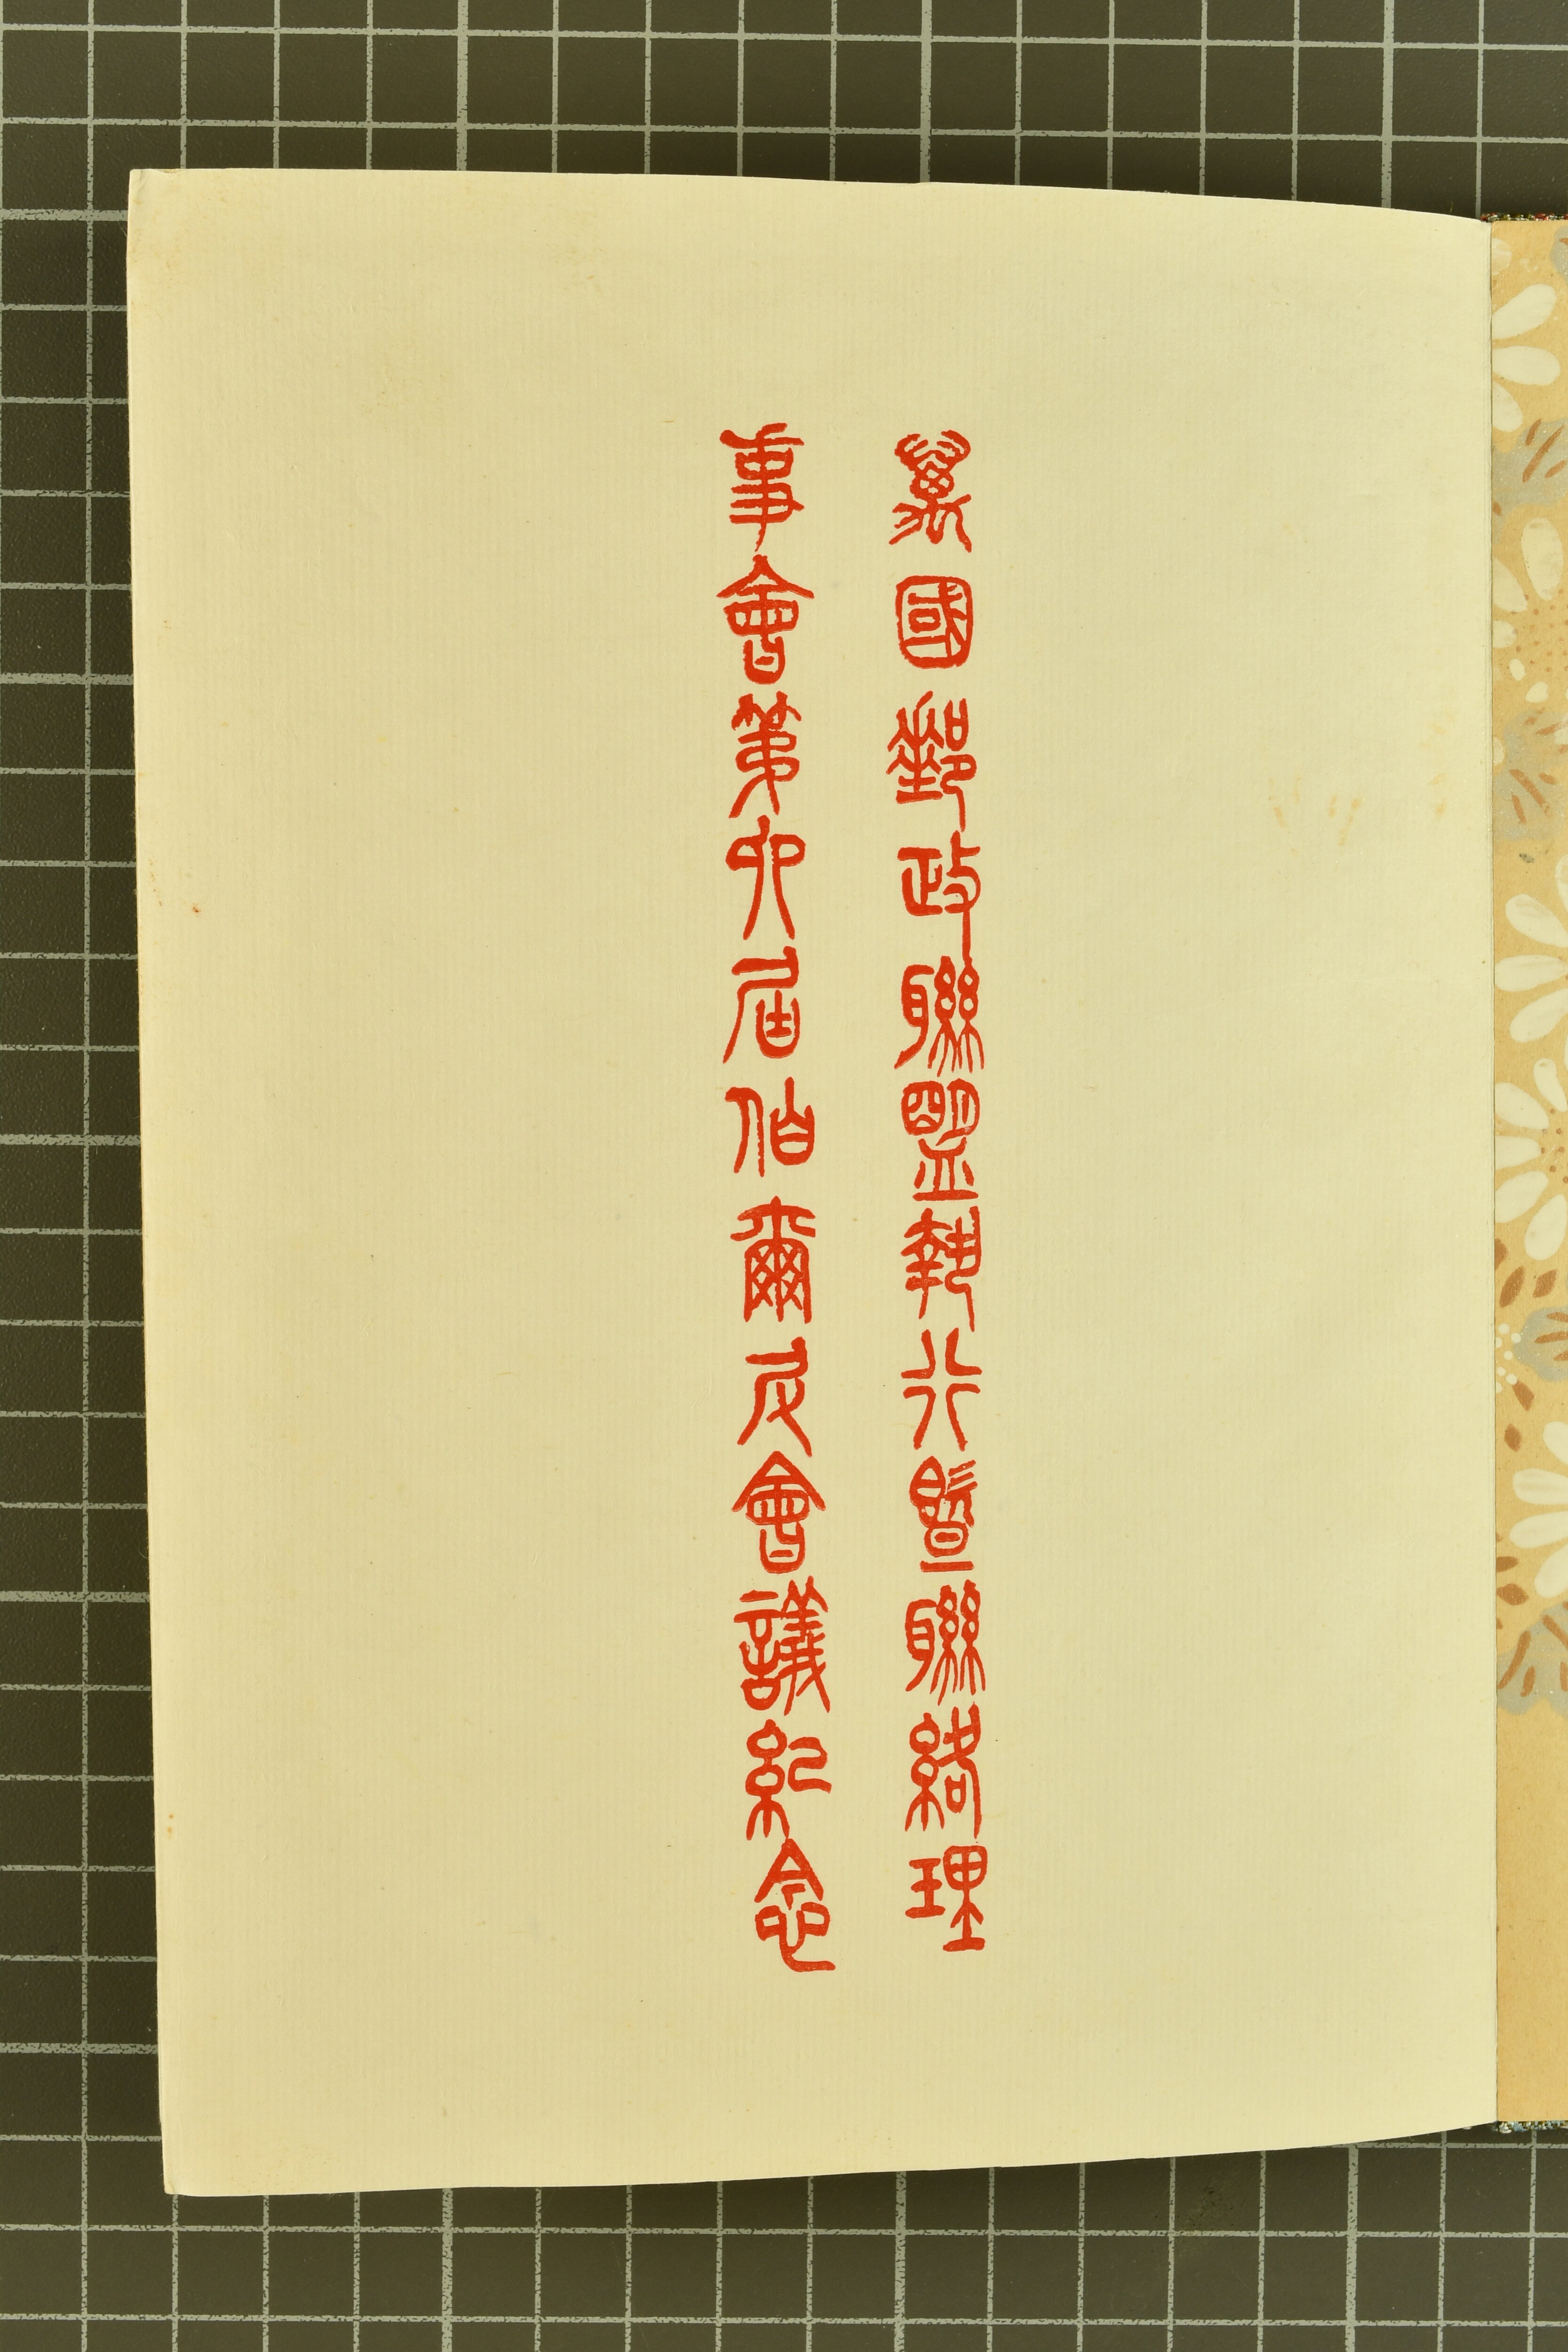 萬國郵政聯盟執行暨聯絡理
事會第六屆伯爾尼會議紀念